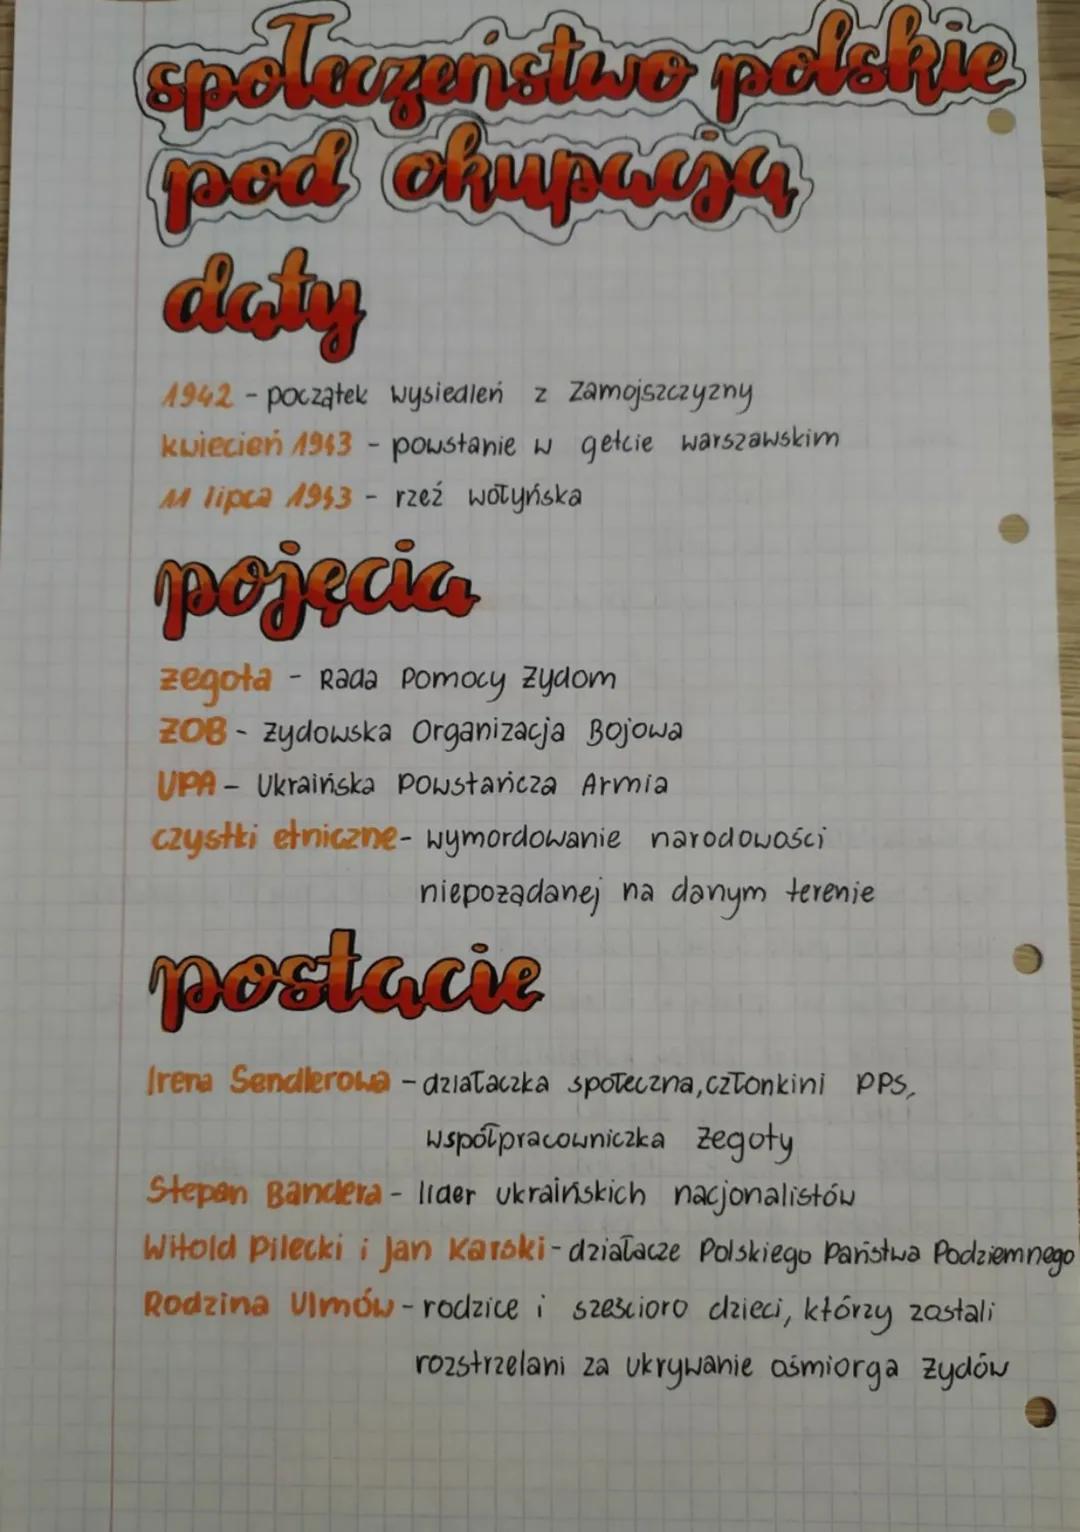 społeczeństwo polskie
pod okupacją
daty
1942 - początek wysiedleń z Zamojszczyzny
kwiecień 1943 - powstanie w getcie warszawskim
11 lipca 1943 - rzeź wołyńska
pojęcia
Żegota - Rada Pomocy Żydom
ŻOB - Żydowska Organizacja Bojowa
UPA - Ukraińska Powstańcza Armia
czystki etniczne - wymordowanie narodowości
niepożądanej na danym terenie
postacie
Irena Sendlerowa - działaczka społeczna, członkini PPS,
współpracowniczka Żegoty
Stepan Bandera - lider ukraińskich nacjonalistów
Witold Pilecki i Jan Karski - działacze Polskiego Państwa Podziemnego
Rodzina Ulmów - rodzice i sześcioro dzieci, którzy zostali
rozstrzelani za ukrywanie ośmiorga Żydów